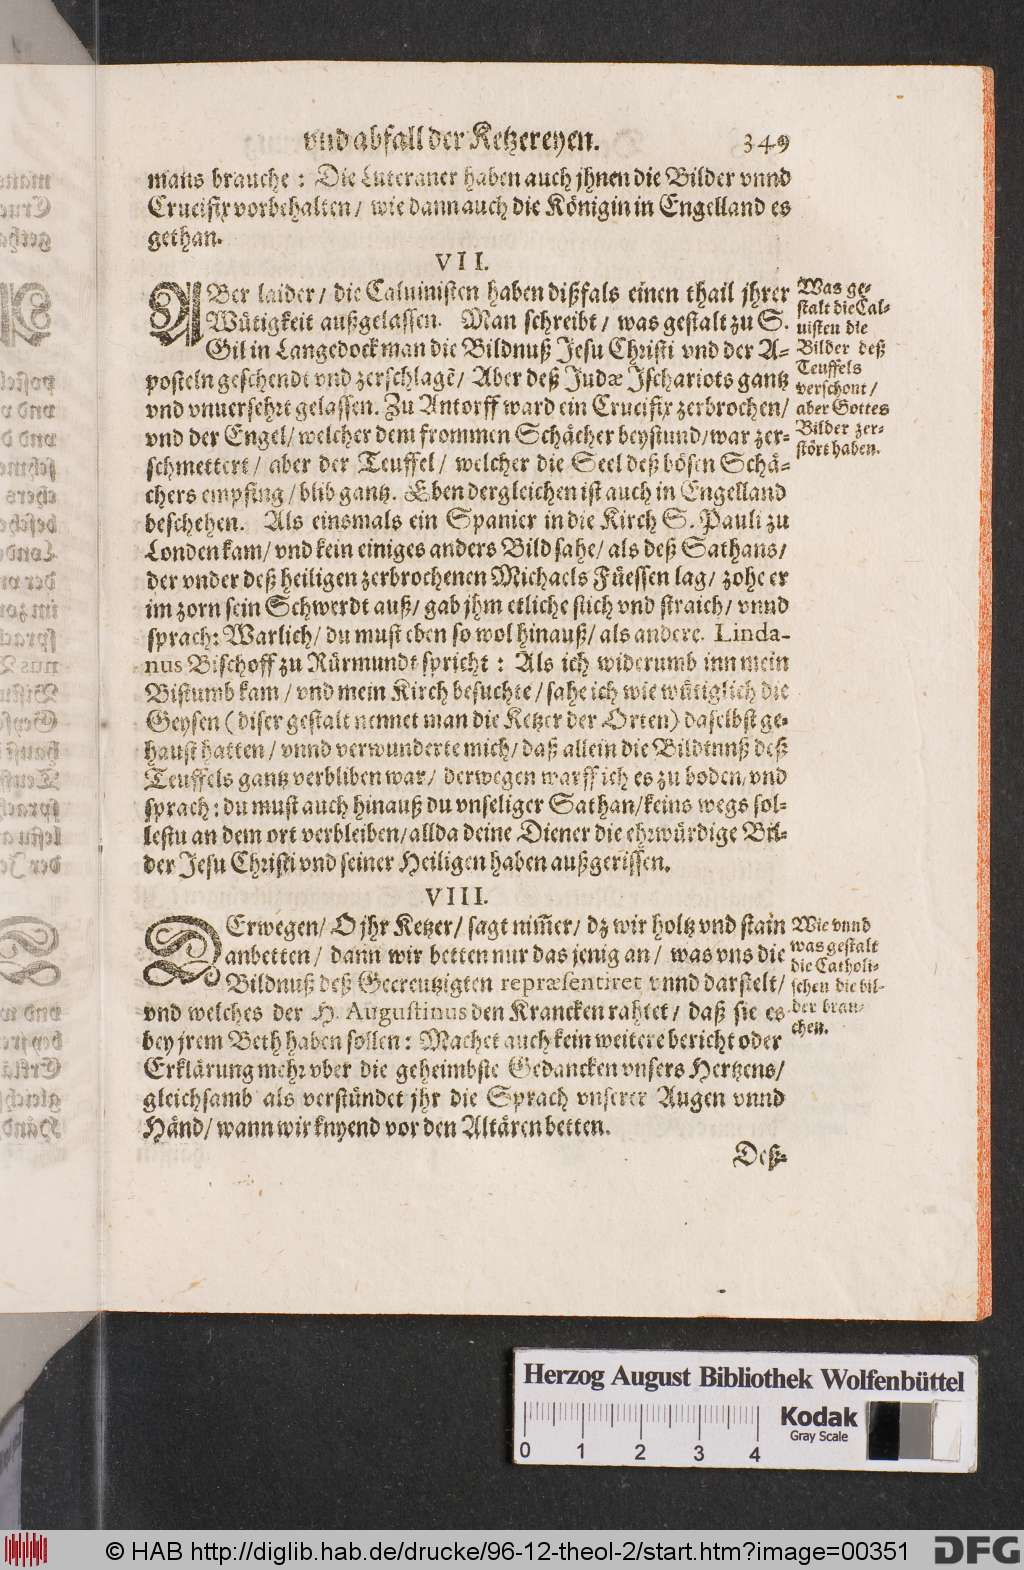 vnd abfall der Ketzereyen. 349
mans brauche: Die Luteraner haben auch jhnen die Bilder vnnd
Crucifix vorbehalten/ wie dann auch die Königin in Engelland es
gethan.
VII.
ABer laider/ die Caluinisten haben dißfals einen thail jhrer
Wütigkeit außgelassen. Man schreibt/ was gestalt zu S.
Gil in Langedock man die Bildnuß Jesu Christi vnd der A-
posteln geschendt vnd zerschlagẽ/ Aber deß Judæ Ischariots gantz
vnd vnuersehrt gelassen. Zu Antorff ward ein Crucifix zerbrochen/
vnd der Engel/ welcher dem frommen Schächer beystund/ war zer-
schmettert/ aber der Teuffel/ welcher die Seel deß bösen Schä-
chers empfing/ blib gantz. Eben dergleichen ist auch in Engelland
beschehen. Als einsmals ein Spanier in die Kirch S. Pauli zu
Londen kam/ vnd kein einiges anders Bild sahe/ als deß Sathans/
der vnder deß heiligen zerbrochenen Michaels Füessen lag/ zohe er
im zorn sein Schwerdt auß/ gab jhm etliche stich vnd straich/ vnnd
sprach: Warlich/ du must eben so wol hinauß/ als andere. Linda-
nus Bischoff zu Rürmundt spricht: Als ich widerumb inn mein
Bistumb kam/ vnd mein Kirch besuchte/ sahe ich wie wütiglich die
Geysen (diser gestalt nennet man die Ketzer der Orten) daselbst ge-
haust hatten/ vnnd verwunderte mich/ daß allein die Bildtnnß deß
Teuffels gantz verbliben war/ derwegen warff ich es zu boden/ vnd
sprach: du must auch hinauß du vnseliger Sathan/ keins wegs sol-
lestu an dem ort verbleiben/ allda deine Diener die ehrwürdige Bil-
der Jesu Christi vnd seiner Heiligen haben außgerissen.
Was ge-
stalt die Cal-
uisten die
Bilder deß
Teuffels
verschont/
aber Gottes
Bilder zer-
stört haben.
VIII.
DErwegen/ O jhr Ketzer/ sagt nim̃er/ dz wir holtz vnd stain
anbetten/ dann wir betten nur das jenig an/ was vns die
Bildnuß deß Gecreutzigten repræsentiret vnnd darstelt/
vnd welches der H. Augustinus den Krancken rahtet/ daß sie es
bey jrem Beth haben sollen: Machet auch kein weitere bericht oder
Erklärung mehr vber die geheimbste Gedancken vnsers Hertzens/
gleichsamb als verstündet jhr die Sprach vnserer Augen vnnd
Händ/ wann wir knyend vor den Altären betten.
Wie vnnd
was gestalt
die Catholi-
schen die bil-
der brau-
chen.
Deß-
Herzog August Bibliothek Wolfenbüttel
0 1 2 3 4
Kodak
Gray Scale
© HAB http://diglib.hab.de/drucke/96-12-theol-2/start.htm?image=00351
DFG